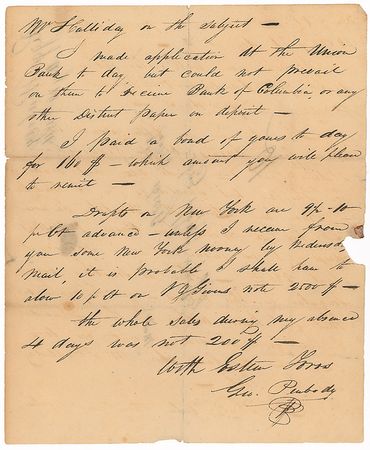 Mr Halliday on the subject —
I made application at the Union
Bank to day, but could not prevail
on them to receive Bank of Columbia, or any
other District paper on deposit —
I paid a bond of yours to day
for 160 $ — which amount you will please
to remit —
Drafts on New York are 9½ - 10
p Ct advance — unless I receive from
you some New York money by Wednesdy
Mail, it is probable I shall have to
alow 10 p Ct on note 2500 $ —
the whole sales during my absence
4 days was not 200 $ —
With Esteem Yours
Geo. Peabody